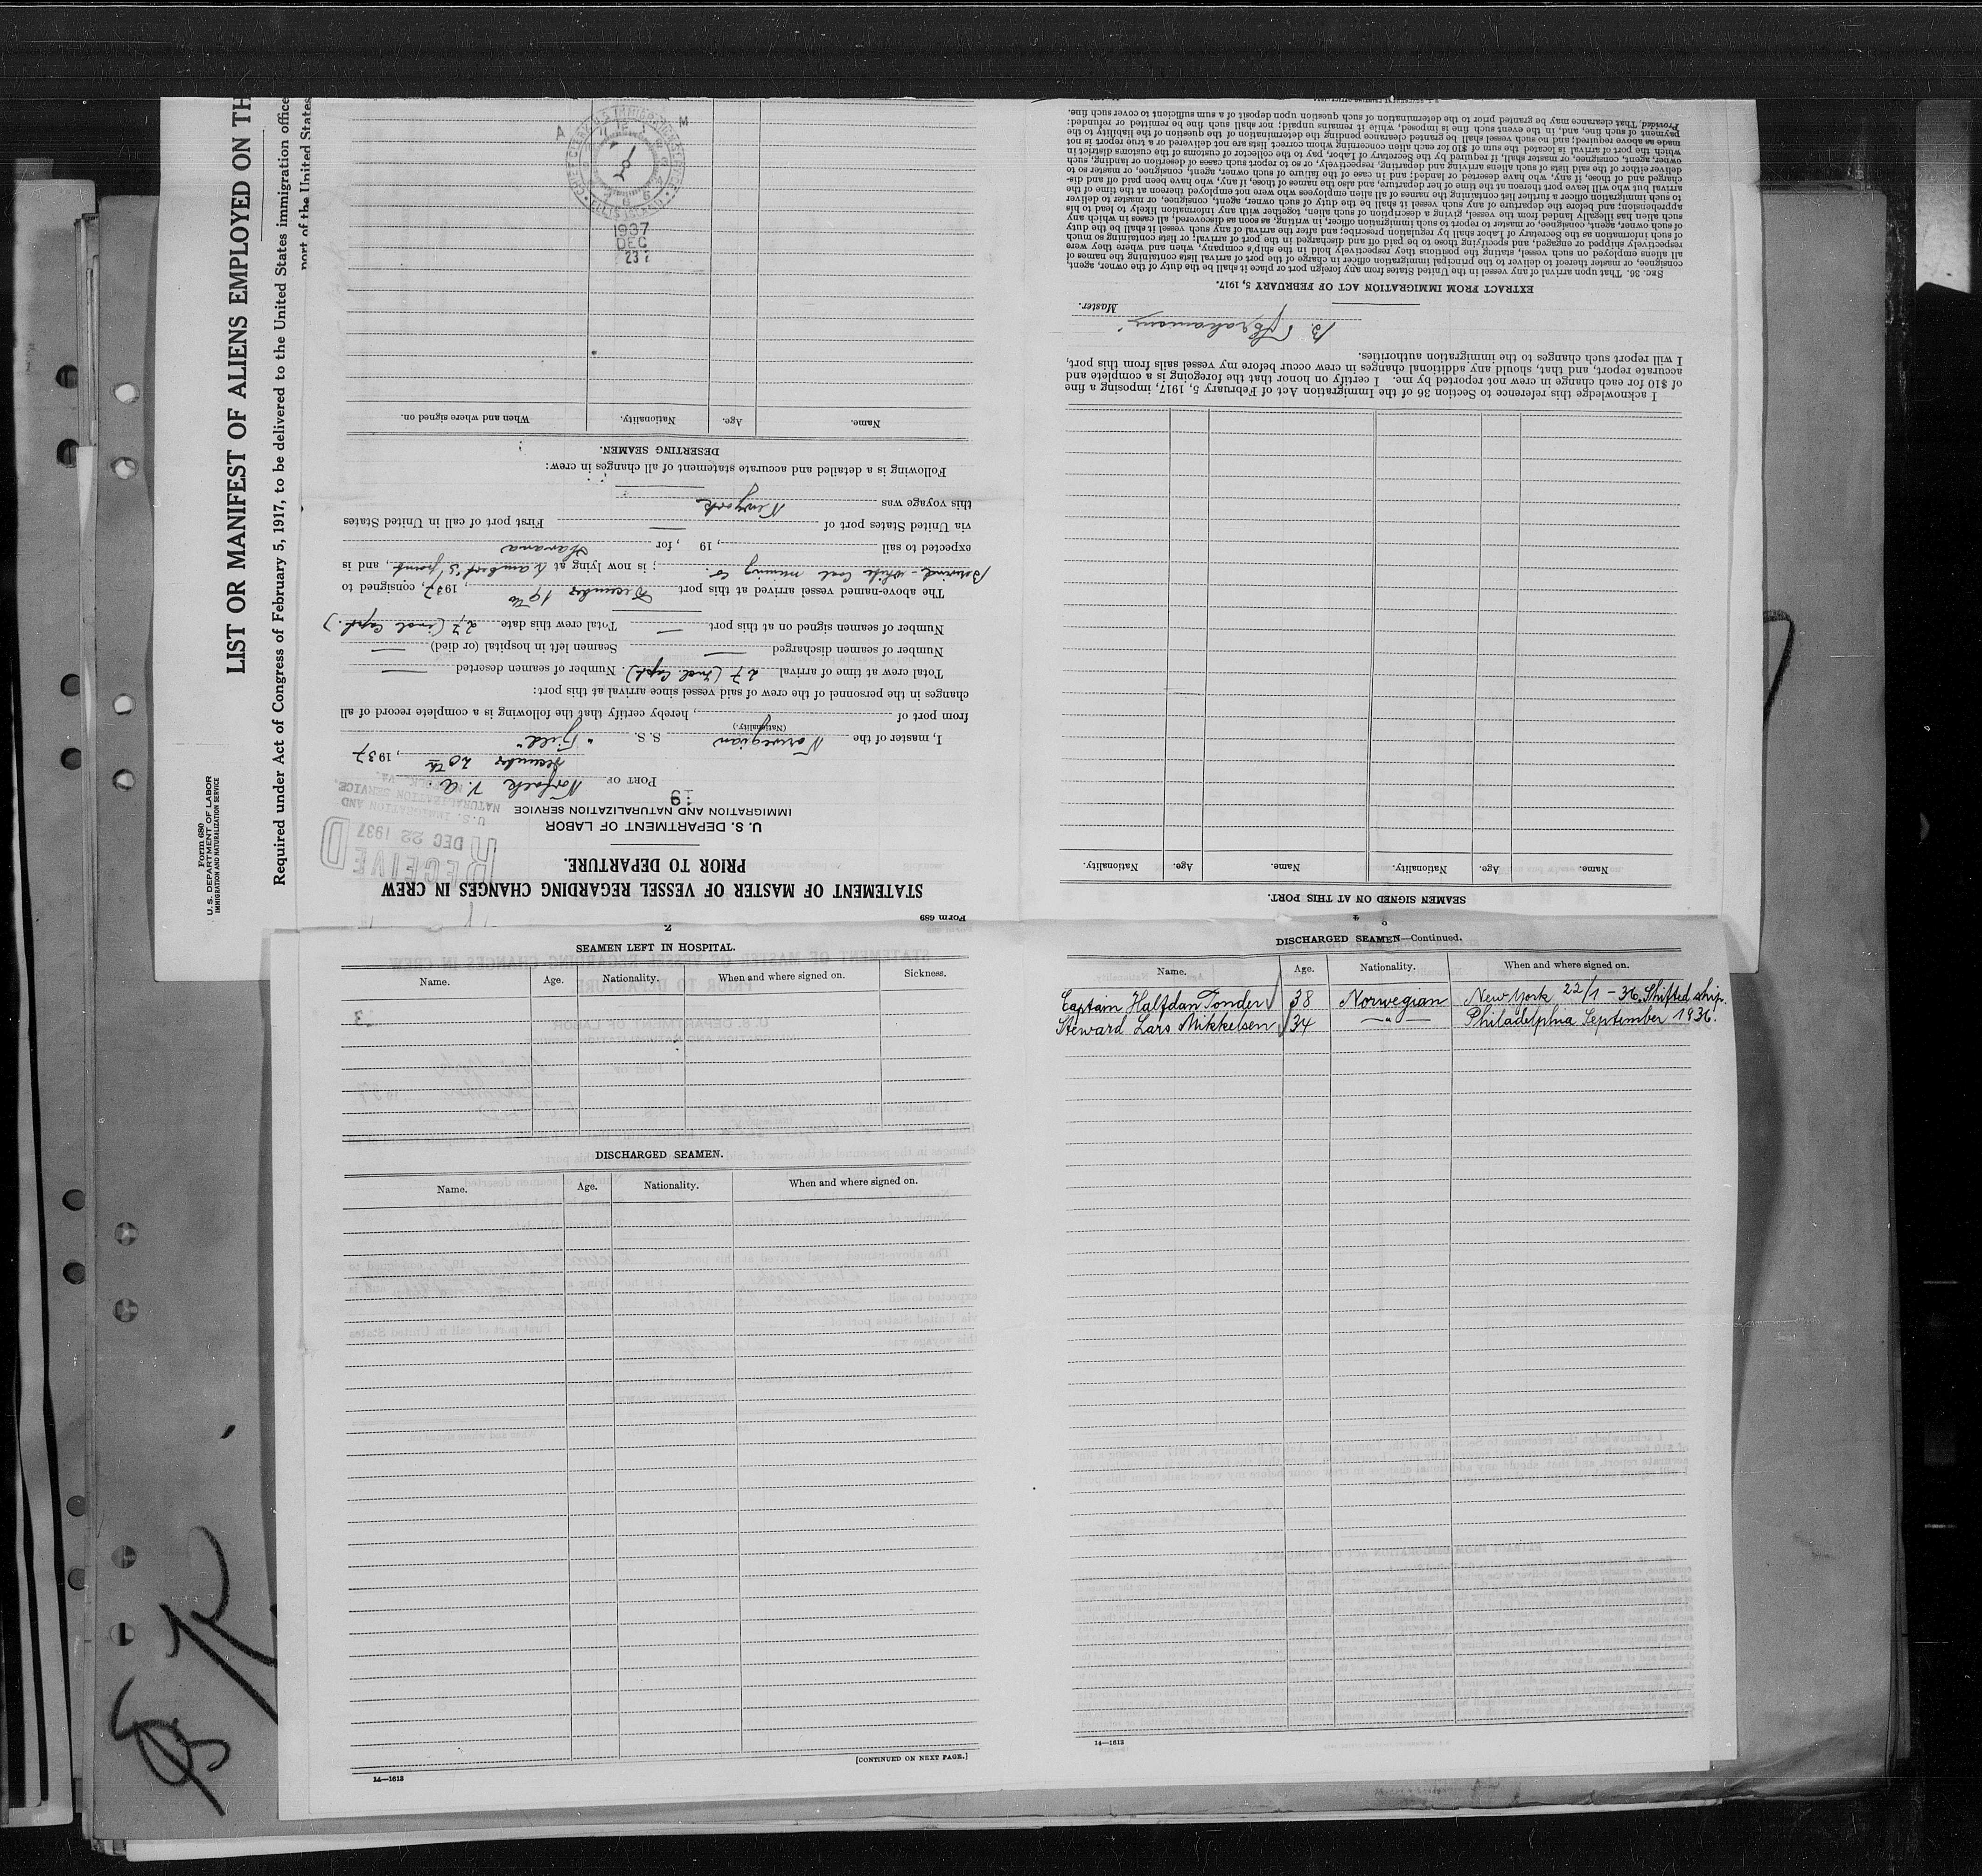 LIST OR MANIFEST OF ALIENS EMPLOYED ON TH
Required under Act of Congress of February 5, 1917, to be delivered to the United States immigration office
port of the United States
Form 680
U. S. DEPARTMENT OF LABOR
IMMIGRATION AND NATURALIZATION SERVICE
Form 689
STATEMENT OF MASTER OF VESSEL REGARDING CHANGES IN CREW
PRIOR TO DEPARTURE.
U. S. DEPARTMENT OF LABOR
IMMIGRATION AND NATURALIZATION SERVICE
RECEIVED
DEC 22 1937
U. S. IMMIGRATION AND
NATURALIZATION SERVICE
19
PORT OF Norfolk V.a.
December 20th, 1937
I, master of the Norwegian S. S. "Fjeld"
(Nationality.)
from port of , hereby certify that the following is a complete record of all
changes in the personnel of the crew of said vessel since arrival at this port:
Total crew at time of arrival 27 (incl Capt.) Number of seamen deserted —
Number of seamen discharged — Seamen left in hospital (or died) —
Number of seamen signed on at this port — Total crew this date 27 (incl Capt.)
The above-named vessel arrived at this port December 19th, 1937, consigned to
Berwind-White Coal mining Co. ; is now lying at Lambert's point, and is
expected to sail , 19 , for Havana
via United States port of — First port of call in United States
this voyage was Newyork
Following is a detailed and accurate statement of all changes in crew:
DESERTING SEAMEN.
Name. Age. Nationality. When and where signed on.
1937
DEC
23
A M
SEAMEN SIGNED ON AT THIS PORT.
Name. Age. Nationality. Name. Age. Nationality.
I acknowledge this reference to Section 36 of the Immigration Act of February 5, 1917, imposing a fine
of $10 for each change in crew not reported by me. I certify on honor that the foregoing is a complete and
accurate report, and that, should any additional changes in crew occur before my vessel sails from this port,
I will report such changes to the immigration authorities.
B. Abrahamsen
Master.
EXTRACT FROM IMMIGRATION ACT OF FEBRUARY 5, 1917.
Sec. 36. That upon arrival of any vessel in the United States from any foreign port or place it shall be the duty of the owner, agent,
consignee, or master thereof to deliver to the principal immigration officer in charge of the port of arrival lists containing the names of
all aliens employed on such vessel, stating the positions they respectively hold in the ship's company, when and where they were
respectively shipped or engaged, and specifying those to be paid off and discharged in the port of arrival; or lists containing so much
of such information as the Secretary of Labor shall by regulation prescribe; and after the arrival of any such vessel it shall be the duty
of such owner, agent, consignee, or master to report to such immigration officer, in writing, as soon as discovered, all cases in which any
such alien has illegally landed from the vessel, giving a description of such alien, together with any information likely to lead to his
apprehension; and before the departure of any such vessel it shall be the duty of such owner, agent, consignee, or master to deliver
to such immigration officer a further list containing the names of all alien employees who were not employed thereon at the time of the
arrival but who will leave port thereon at the time of her departure, and also the names of those, if any, who have been paid off and dis-
charged and of those, if any, who have deserted or landed; and in case of the failure of such owner, agent, consignee, or master so to
deliver either of the said lists of such aliens arriving and departing, respectively, or so to report such cases of desertion or landing, such
owner, agent, consignee, or master, shall, if required by the Secretary of Labor, pay to the collector of customs of the customs district in
which the port of arrival is located the sum of $10 for each alien concerning whom correct lists are not delivered or a true report is not
made as above required; and no such vessel shall be granted clearance pending the determination of the question of the liability to the
payment of such fine, and, in the event such fine is imposed, while it remains unpaid; nor shall such fine be remitted or refunded:
Provided, That clearance may be granted prior to the determination of such question upon deposit of a sum sufficient to cover such fine.
2
SEAMEN LEFT IN HOSPITAL.
Name. Age. Nationality. When and where signed on. Sickness.
DISCHARGED SEAMEN.
Name. Age. Nationality. When and where signed on.
[CONTINUED ON NEXT PAGE.]
14—1613
DISCHARGED SEAMEN—Continued.
Name. Age. Nationality. When and where signed on.
Captain Halfdan Tonder 38 Norwegian New York 22/1 - 36. Shifted ship.
Steward Lars Mikkelsen 34 —"— Philadelphia September 1936.
14—1613